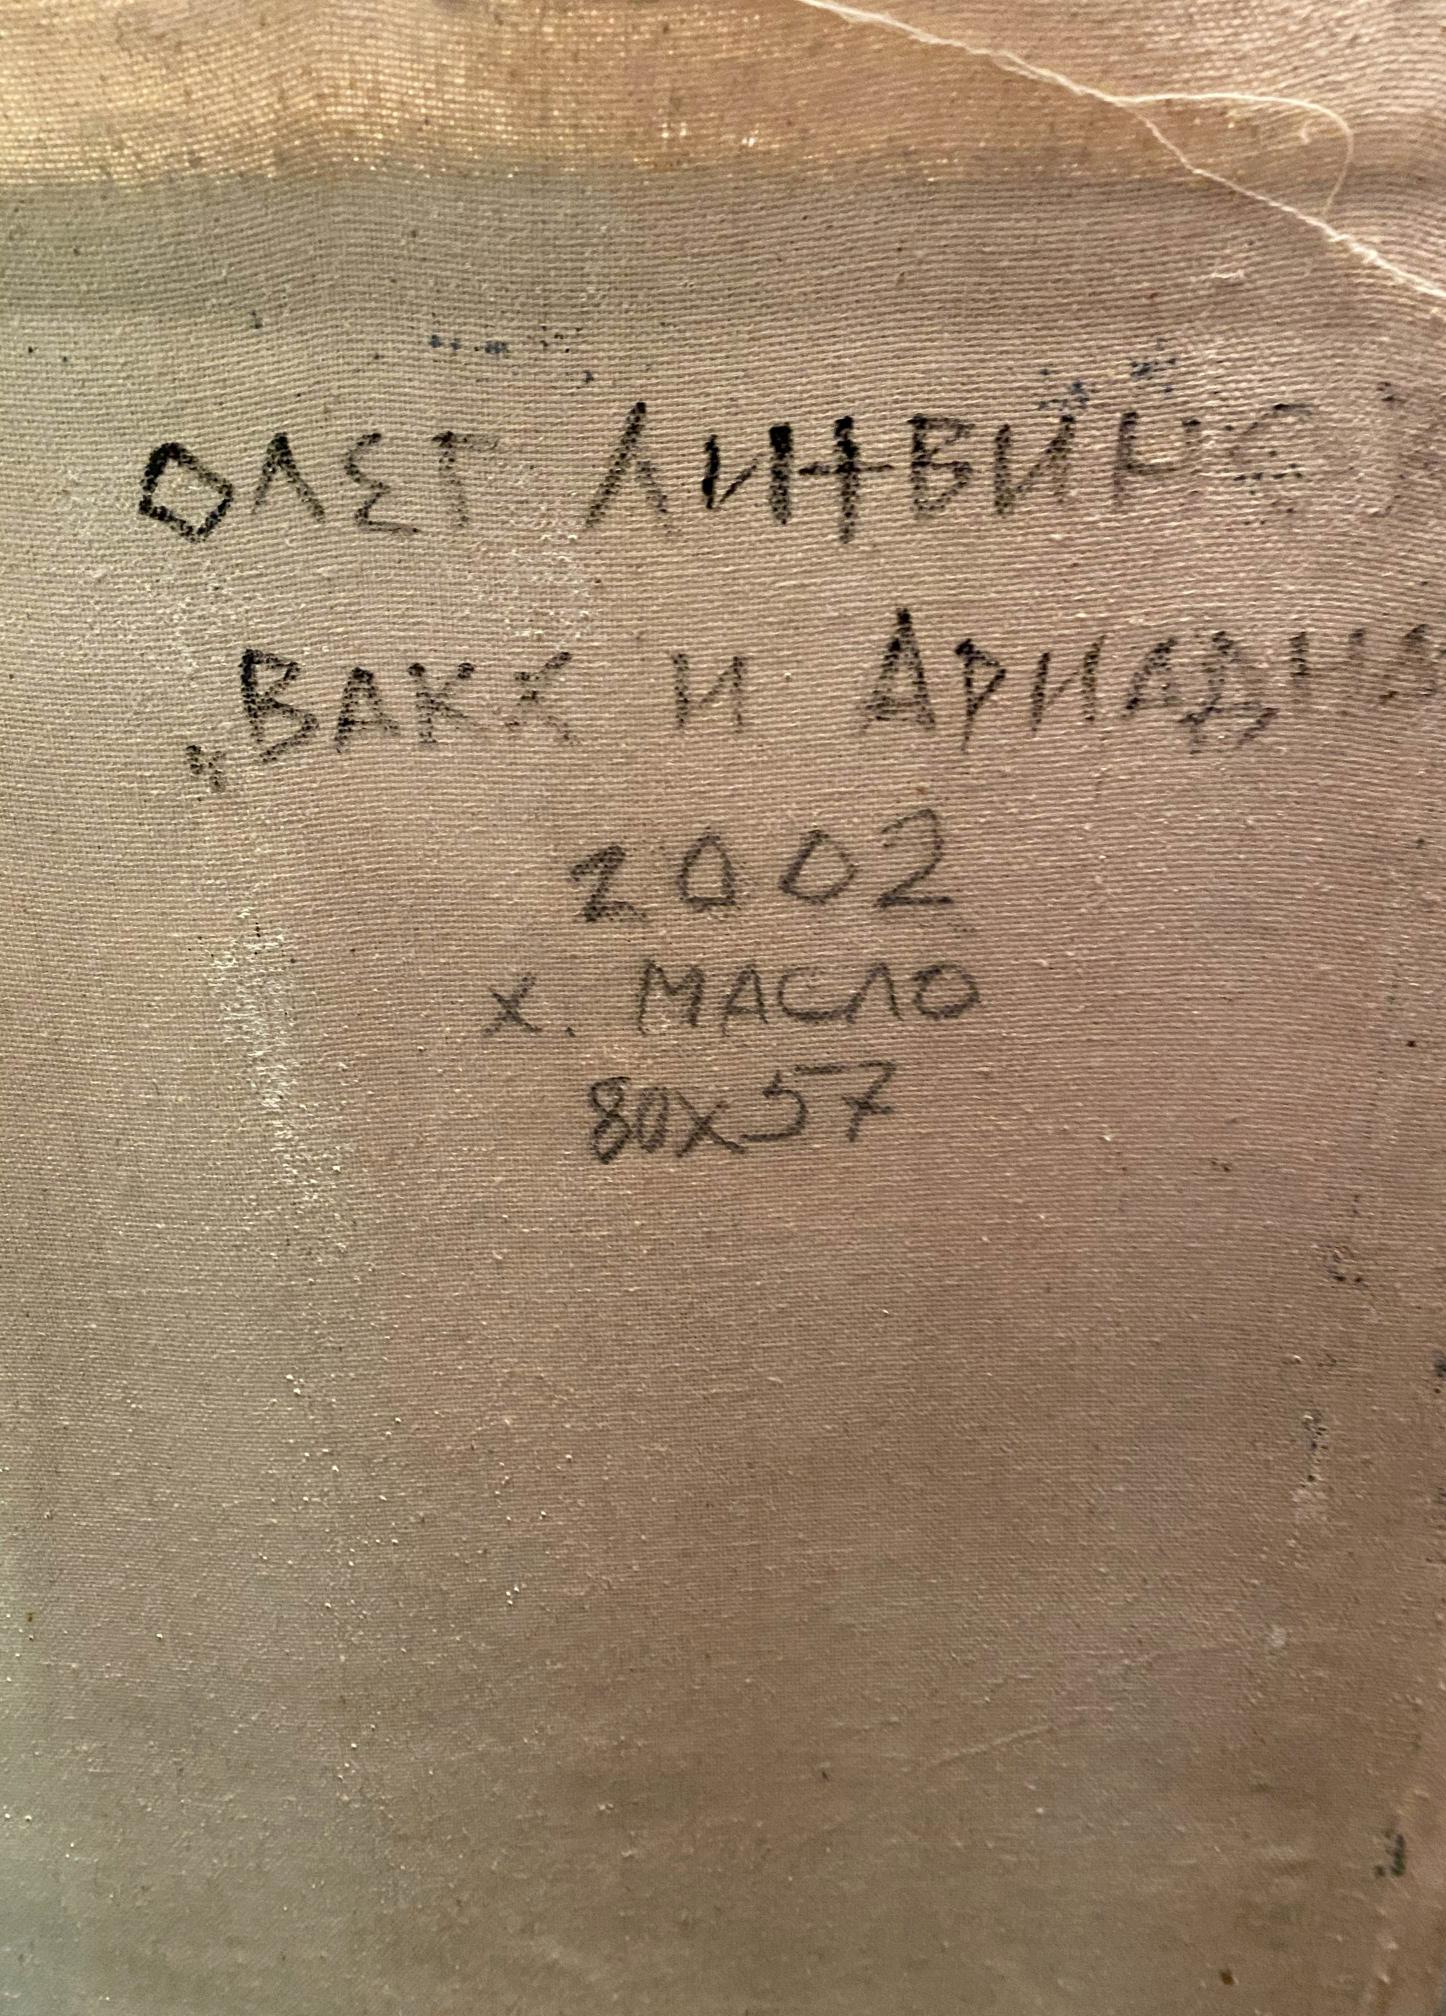 ОЛЕГ
„ВАКХ И АРИАДНА
2002
х. МАСЛО
80х57